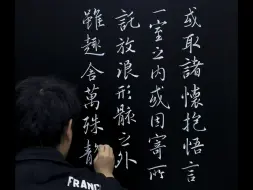 或取諸懷抱悟言
一室之內或因寄所
託放浪形骸之外
雖趣舍萬殊靜
FRANC